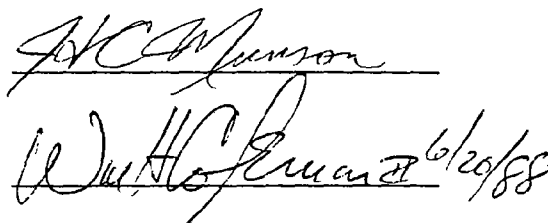 H C Munson
Wm H Coleman II 6/20/88